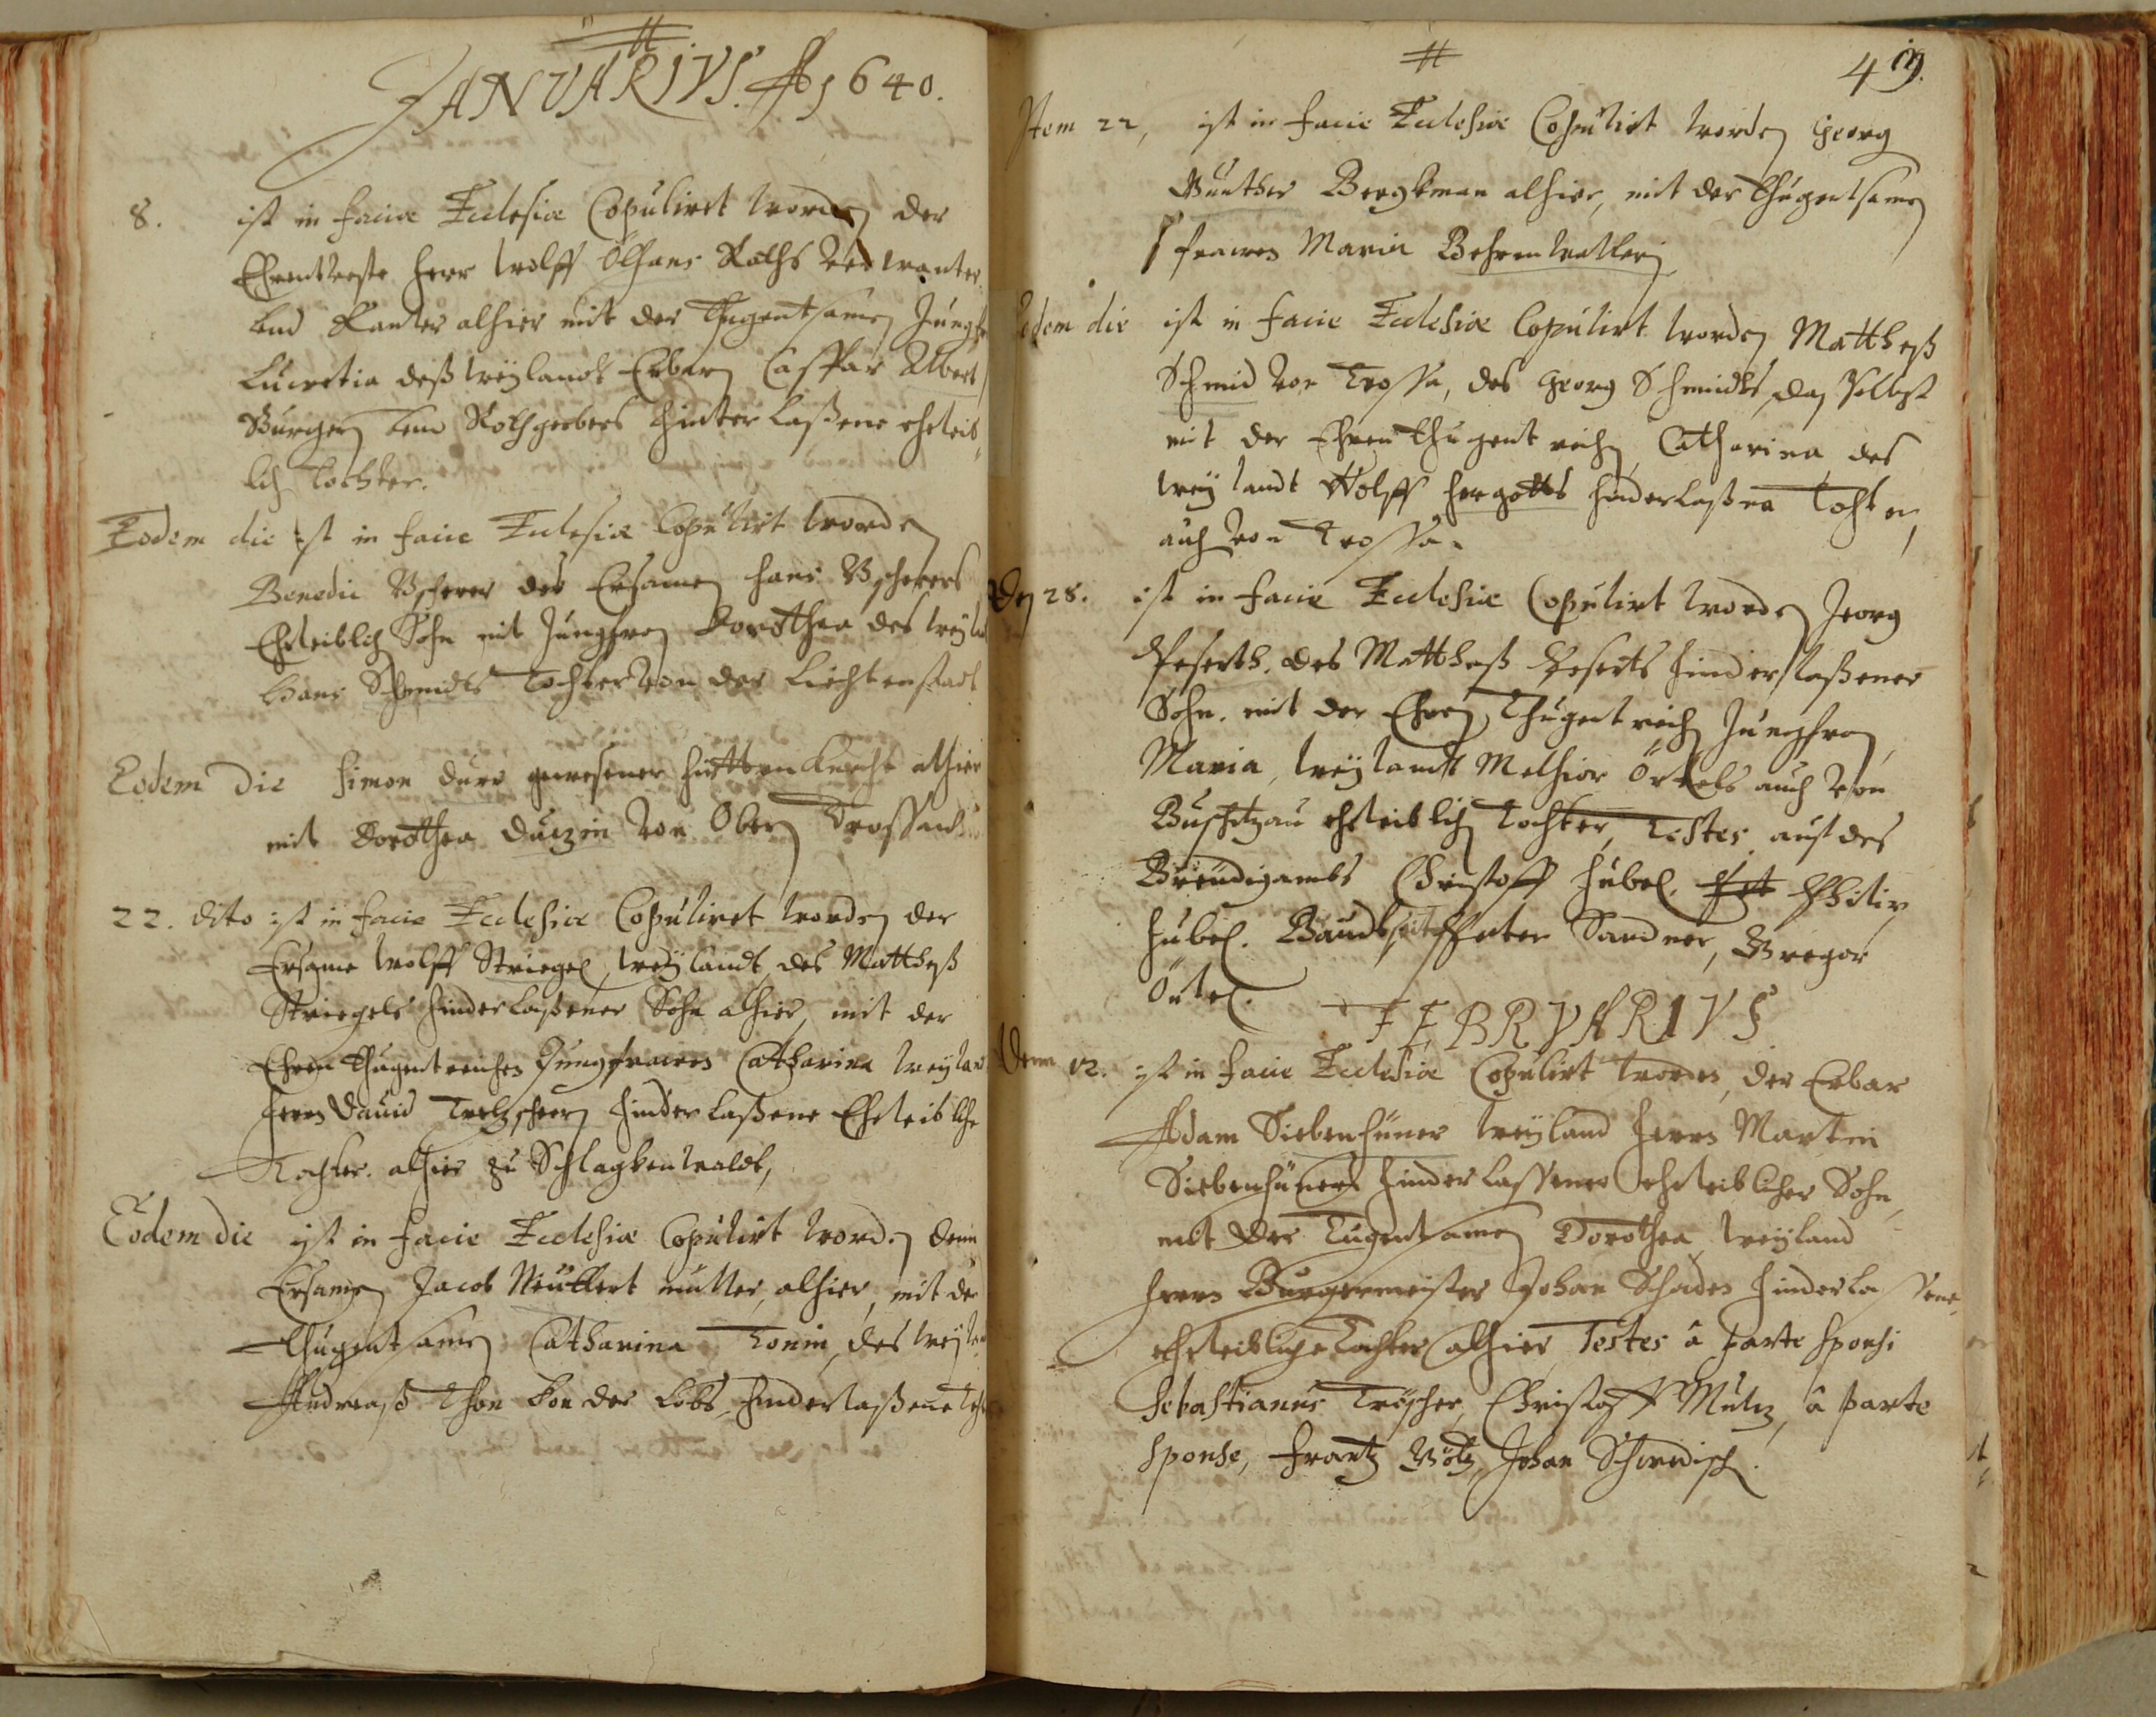 JANVARIVS. Ao 1640.
8. ist in faciæ Ecclesiæ Copuliret worden der
Ehrntveste Herr Wolff Ölhans Raths verwanter
vnd Kanter alhier mit der Thugentsamen Jungfr
Lucretia deß weylandt Erbarn Casspar Albert
Burgers vnd Rothgerbers hinterlaßene eheleib
lich Tochter.
Eodem die ist in facie Ecclesiæ Copulirt worden
Benedic des Ersamen Hans
Eheleiblich Sohn mit Jungfraw Dorothea des weyla
Hans Schmidts Tochter von der Liechtenstadt
Eodem Die Simon Durr gewesener Hüttenknecht alhier
mit Dorothea Duczin von Obern Trossau
22. dito ist in facie Ecclesiæ Copuliret worden der
Ersame Wolff Striegel, weylandt des Mattheß
Striegels hinderlaßener Sohn alhier, mit der
Ehren Thugentreichen Jungfrawen Catharina weylan
Herrn Dauid hinderlaßene Eheleibliche
Tochter. alhier zu Schlagkenwaldt,
Eodem die ist in facie Ecclesiæ Copulirt worden dem
Ersamen Jacob muller, alhier, mit der
Thugentsamen Catharina Tonin, des weyla
Andreaß Thon von der Lobs, hinderlaßene
419.
Item 22, ist in facie Ecclesiæ Copulirt worden Georg
Günther Bergkman alhier, mit der Thugentsamen
frawen Maria
Eodem die ist in facie Ecclesiæ Copulirt worden Mattheß
Schmid von Trossa, des Georg Schmidts, daselbst
mit der Ehren Thugentreich Catharina des
weylandt Wolff Hergotts hinderlaßne Tochter,
auch von Trossa.
Den 28. ist in facie Ecclesiæ Copulirt worden Jeorg
des Mattheß hinderlaßener
Sohn. mit der Ehren Thugentreich Jungfraw
Maria, weylandt Melhior Örtels auch von
Buschitzau eheleiblich Tochter, Testes auf des
Breudigambs Christoff Hübel.
Hübel. Sandner, Gregor
Örtel.
FEBRVARIVS
Denn 12. ist in facie Ecclesiæ Copulirt worden, der Erbar
Adam Siebenhüner weyland Herrn Martin
Siebenhüners hinderlassener eheleiblicher Sohn,
mit der Tugentsamen Dorothea weyland
Herrn Burgermeister Johan Schaden hinderlassene
eheleibliche Tochter alhier Testes â parte sponsi
Sebastianus Tröscher, Christoff Mulz, â parte
sponse, Frantz Johan